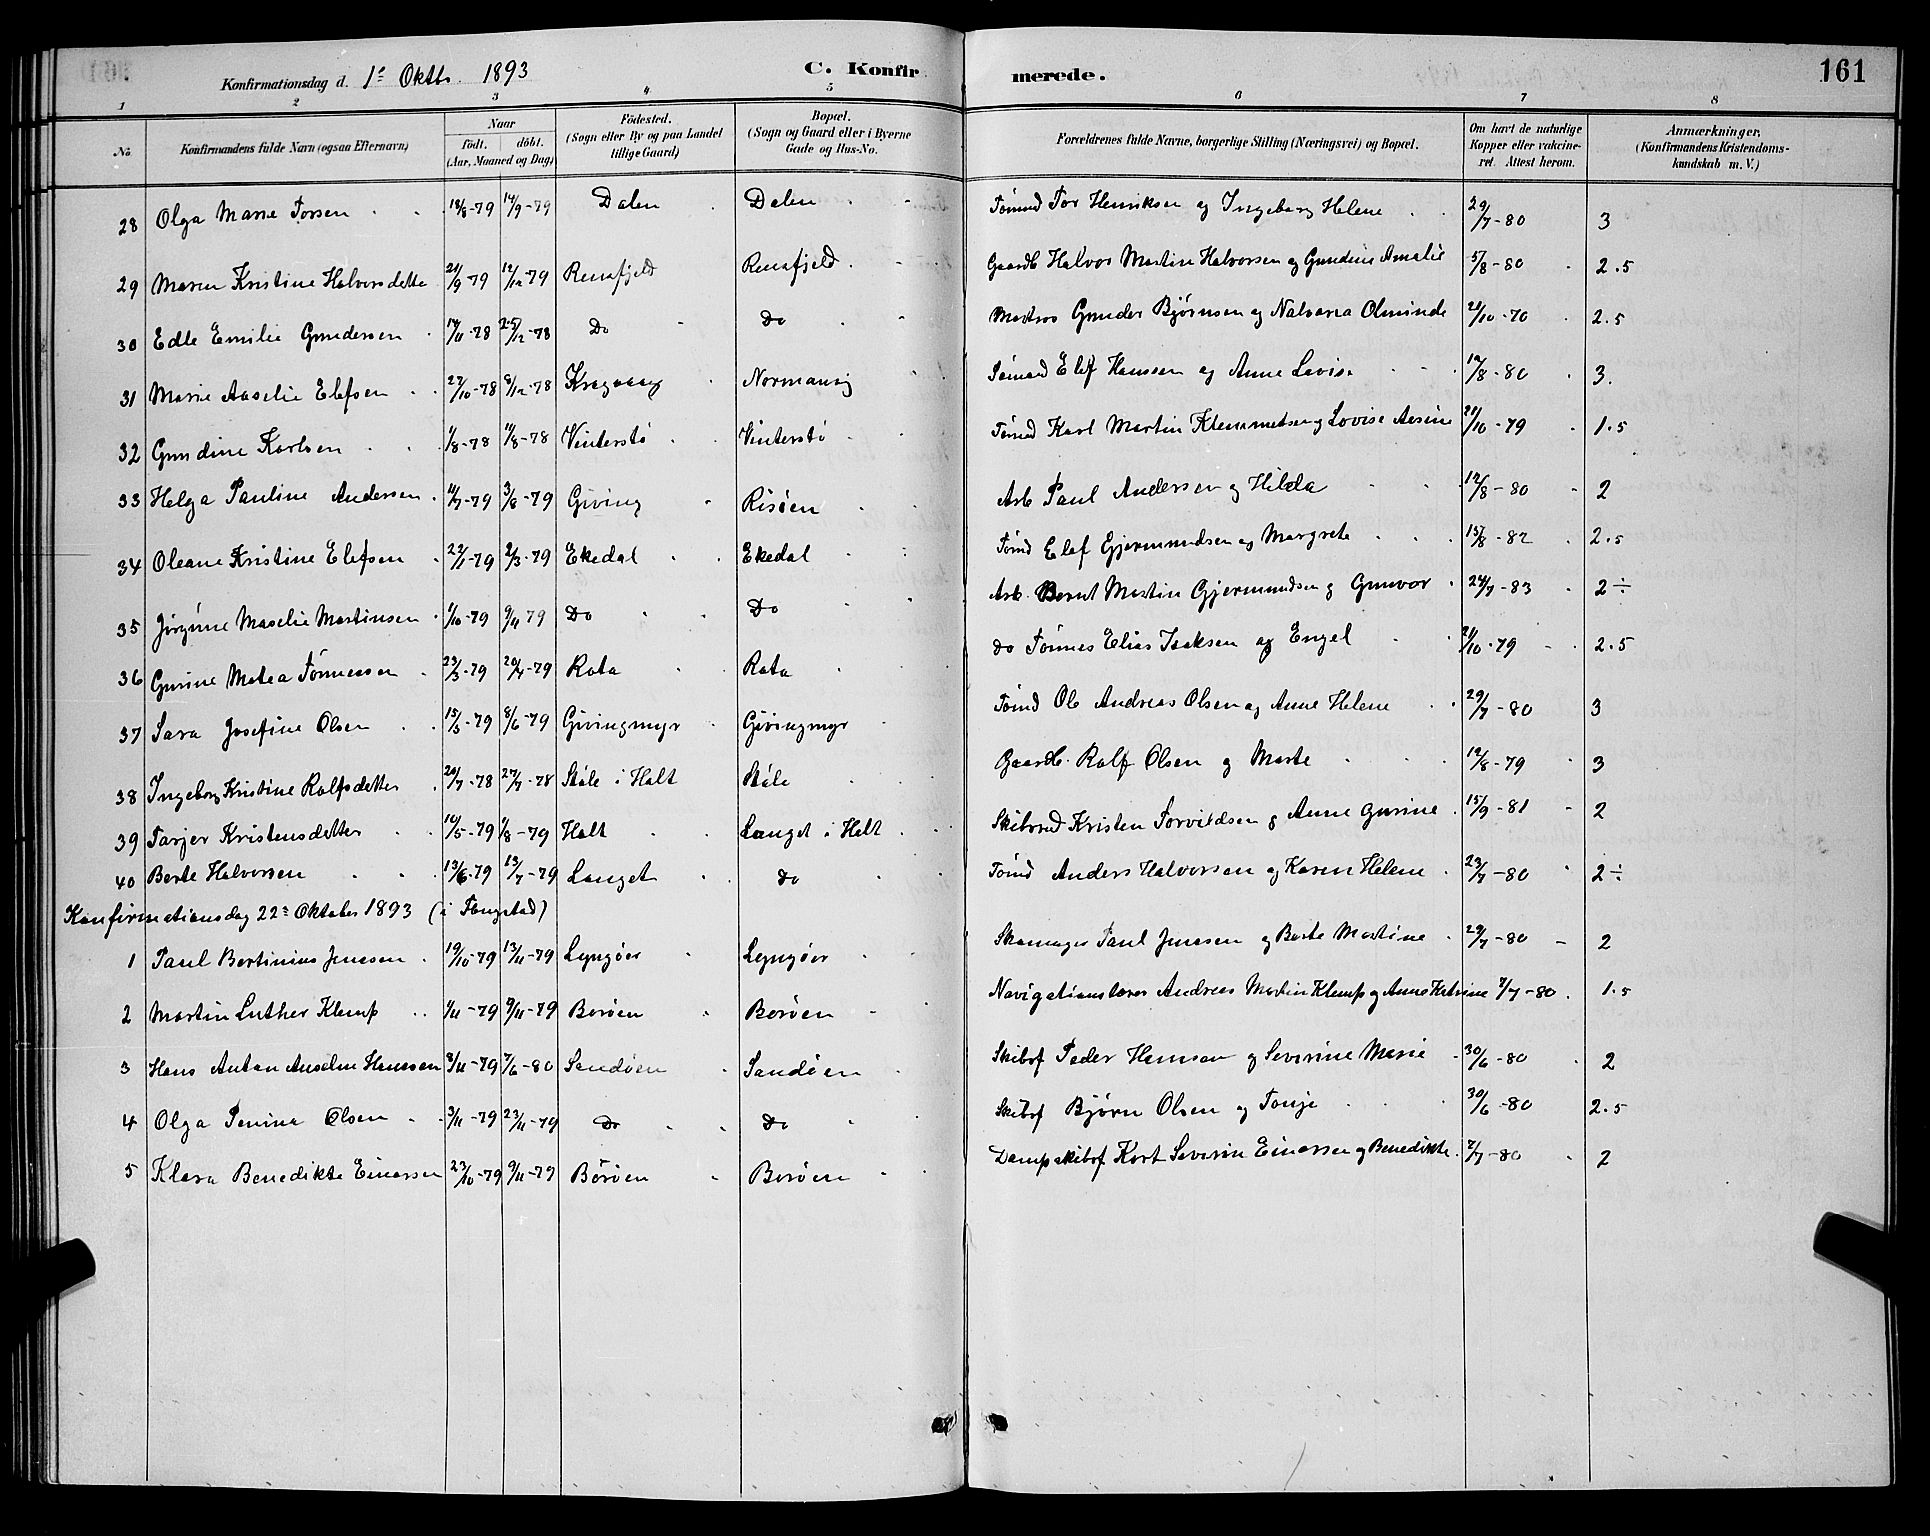 Konfirmationsdag d. 1ᵉ Oktbr. 1893 C. Konfir merede. 161
1 2 3 4 5 6 7 8
No. Konfirmandens fulde Navn (ogsaa Efternavn) Naar födt. döbt. (Aar, Maaned og Dag) Födested. (Sogn eller By og paa Landet tillige Gaard) Bopæl. (Sogn og Gaard eller i Byerne Gade og Hus-No. Forældrenes fulde Navne, borgerlige Stilling (Næringsvei) og Bopæl. Om havt de naturlige Kopper eller vakcineret. Attest herom. Anmærkninger. (Konfirmandens Kristendomskundskab m. V.)
28 Olga Marie Torsen 18/8-79 14/9-79 Dalen Dalen Tor Henriksen og Ingeborg Helene 29/7-80 3
29 Maren Kristine Halvorsdatter 21/9-79 14/12-79 Rensfjeld Rensfjeld Gaardb Halvor Martin Halvorsen og Gundine Amalie 5/8-80 2.5
30 Edle Emilie Gundersen 14/11-78 25/12-78 Do Do Matros Gunder Bjørnsen og Olminde 21/10-70 2.5
31 Marie Aaselie Elefsen 27/10-78 8/12-78 Kragvaag Normansvig Elef Hanssen og Anne Lovise 12/8-80 3.
32 Gundine Karlsen 1/8-78 11/8-78 Vinterstø Vinterstø Karl Martin Klemmetsen og Lovise 21/10-79 1.5
33 Helga Pauline Andersen 11/7-79 3/8-79 Giving Risøen Arb Paul Andersen og Hilda 12/8-80 2
34 Oleane Kristine Elefsen 22/1-79 2/3-79 Ekedal Ekedal Elef Gjermundsen og Margrete 13/8-82 2.5
35 Jørgine Maselie Martinsen 1/10-79 9/11 79 Do Do Arb. Bernt Martin Gjermundsen og Gunvor 24/7-83 2÷
36 Gurine Matea Tønnessen 23/3-79 20/4-79 Rota Rota do Tønnes Elias Isaksen og Engel 21/10-79 2.5
37 Sara Josefine Olsen 15/3-79 8/6-79 Givingmyr Givingmyr Ole Andreas Olsen og Anne Helene 29/7-80 3
38 Ingeborg Kristine Rolfsdatter 20/7-78 27/7-78 Støle i Holt Støle Gaardb. Rolf Olsen og Marte 12/8-79 3
39 Tarjer Kristensdatter 16/5-79 1/8-79 Holt Langet i Holt Kristen Torvildsen og Anne Gurine 15/9-81 2
40 Berte Halvorsen 13/6-79 13/7-79 Langet do Anders Halvorsen og Karen Helene 23/7-80 2÷
Konfirmationsdag 22ᵉ Oktober 1893 (i Flangstad)
1 Paul Bertinius Jensen 19/10-79 13/11-79 Lyngøer Lyngøer Skomager Paul Jensen og Berte Martine 29/7-80 2
2 Martin Luther Klemp 1/11-79 9/11-79 Borøen Borøen Navigationslærer Andreas Martin Klemp og Anne Katrine 7/7-80 1.5
3 Hans Anton Anselm Hanssen 8/11-79 7/6-80 Sandøen Sandøen Skibsf Peder Hanssen og Severine Marie 30/6-80 2
4 Olga Penina Olsen 3/11-79 23/11-79 Do Do Skibsf Bjørn Olsen og Tonje 30/6-80 2.5
5 Klara Benedikte Einersen 23/10-79 9/11-79 Borøen Borøen Dampskibsf Kort Severin Einersen og Benedikte 7/7-80 2